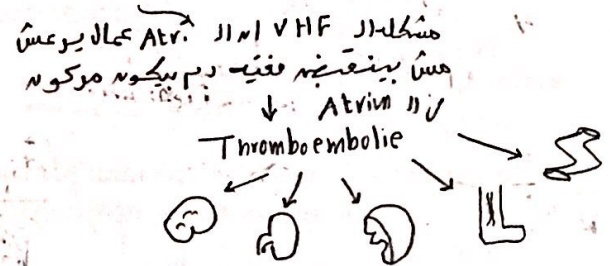 مشكلة ال VHF ان ال Atri. عمال يرعش
مش بينقبض ففيه دم بيكون مركون
في ال Atrium
Thromboembolie